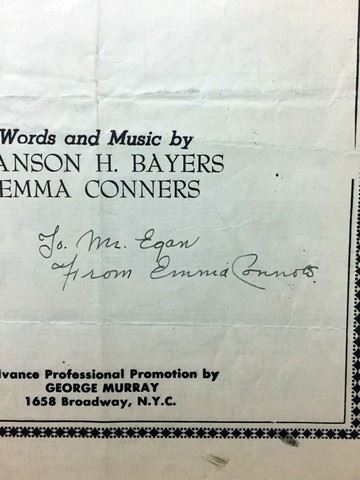 Words and Music by
ANSON H. BAYERS
EMMA CONNERS
To. Mr. Egan
From Emma Connors.
dvance Professional Promotion by
GEORGE MURRAY
1658 Broadway, N.Y.C.